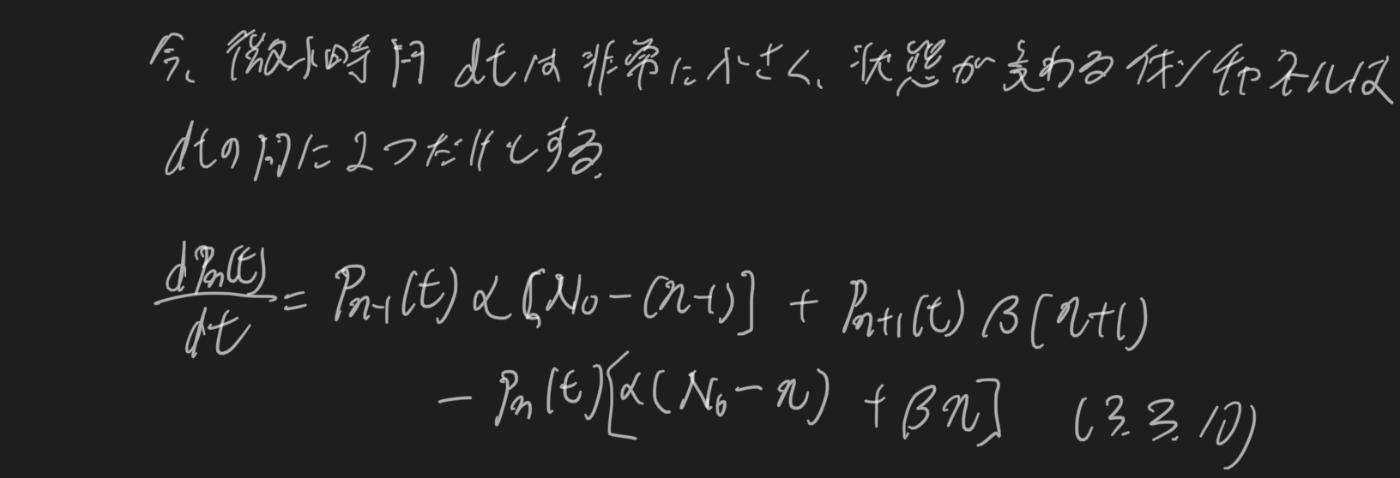 今、微小時間 dtは非常に小さく、状態が変わるイオンチャネルは
dtの間に1つだけとする。
dPn(t)/dt = Pn-1(t) α [N0 - (n-1)] + Pn+1(t) β (n+1)
- Pn(t) [α(N0 - n) + βn] (3.3.10)